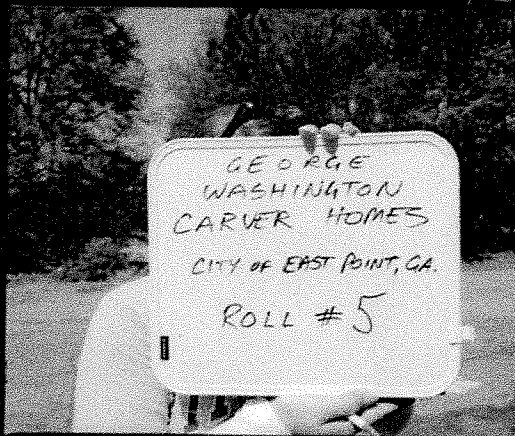 GEORGE
WASHINGTON
CARVER HOMES
CITY OF EAST POINT, GA.
ROLL #5